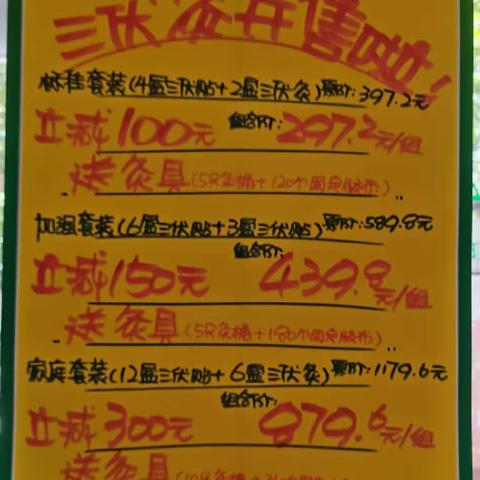 三伏灸开售啦！
标准套装(4盒三伏贴+2盒三伏灸)票价:397.2元
立减100元 组合价:297.2元/组
送灸具(5R灸桶+120个固定胶布)
加强套装(6盒三伏贴+3盒三伏贴)票价:589.8元
组合价:
立减150元 439.8元/组
送灸具(5R灸桶+180个固定胶布)
家庭套装(12盒三伏贴+6盒三伏灸)票价:1179.6元
组合价:
立减300元 879.6元/组
送灸具